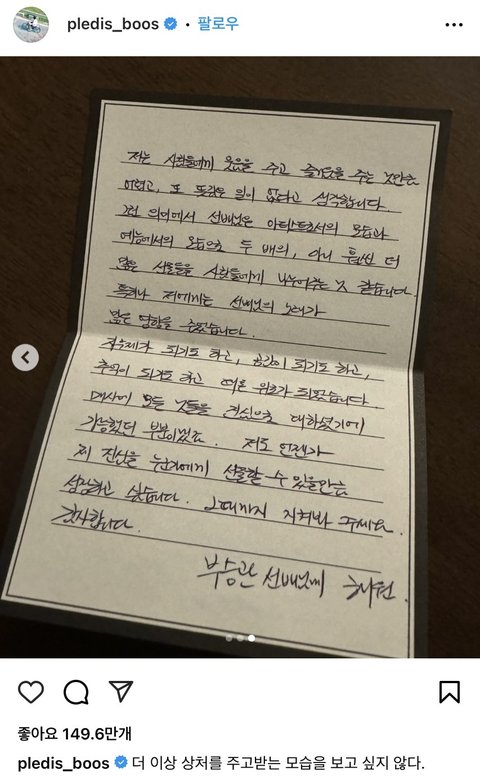 pledis_boos · 팔로우
저는 사람들에게 웃음을 주고 즐거움을 주는 것만큼
어렵고, 또 뜻깊은 일이 없다고 생각합니다.
그런 의미에서 선배님은 아티스트로서의 모습과
예능에서의 모습으로 두 배의, 아니 훨씬 더
많은 선물들을 사람들에게 나누어주는 것 같습니다.
특히나 저에게는 선배님의 노래가
많은 영향을 주었습니다.
되기도 하고, 공감이 되기도 하고,
추억이 되기도 하고 때론 위로가 되었습니다.
매사에 모든 것들을 진심으로 대하셨기에
가능했던 부분이겠죠. 저도 언젠가
제 진심을 누군가에게 선물할 수 있을만큼
성장하고 싶습니다. 그때까지 지켜봐 주세요.
감사합니다.
부승관 선배님께
좋아요 149.6만개
pledis_boos 더 이상 상처를 주고받는 모습을 보고 싶지 않다.